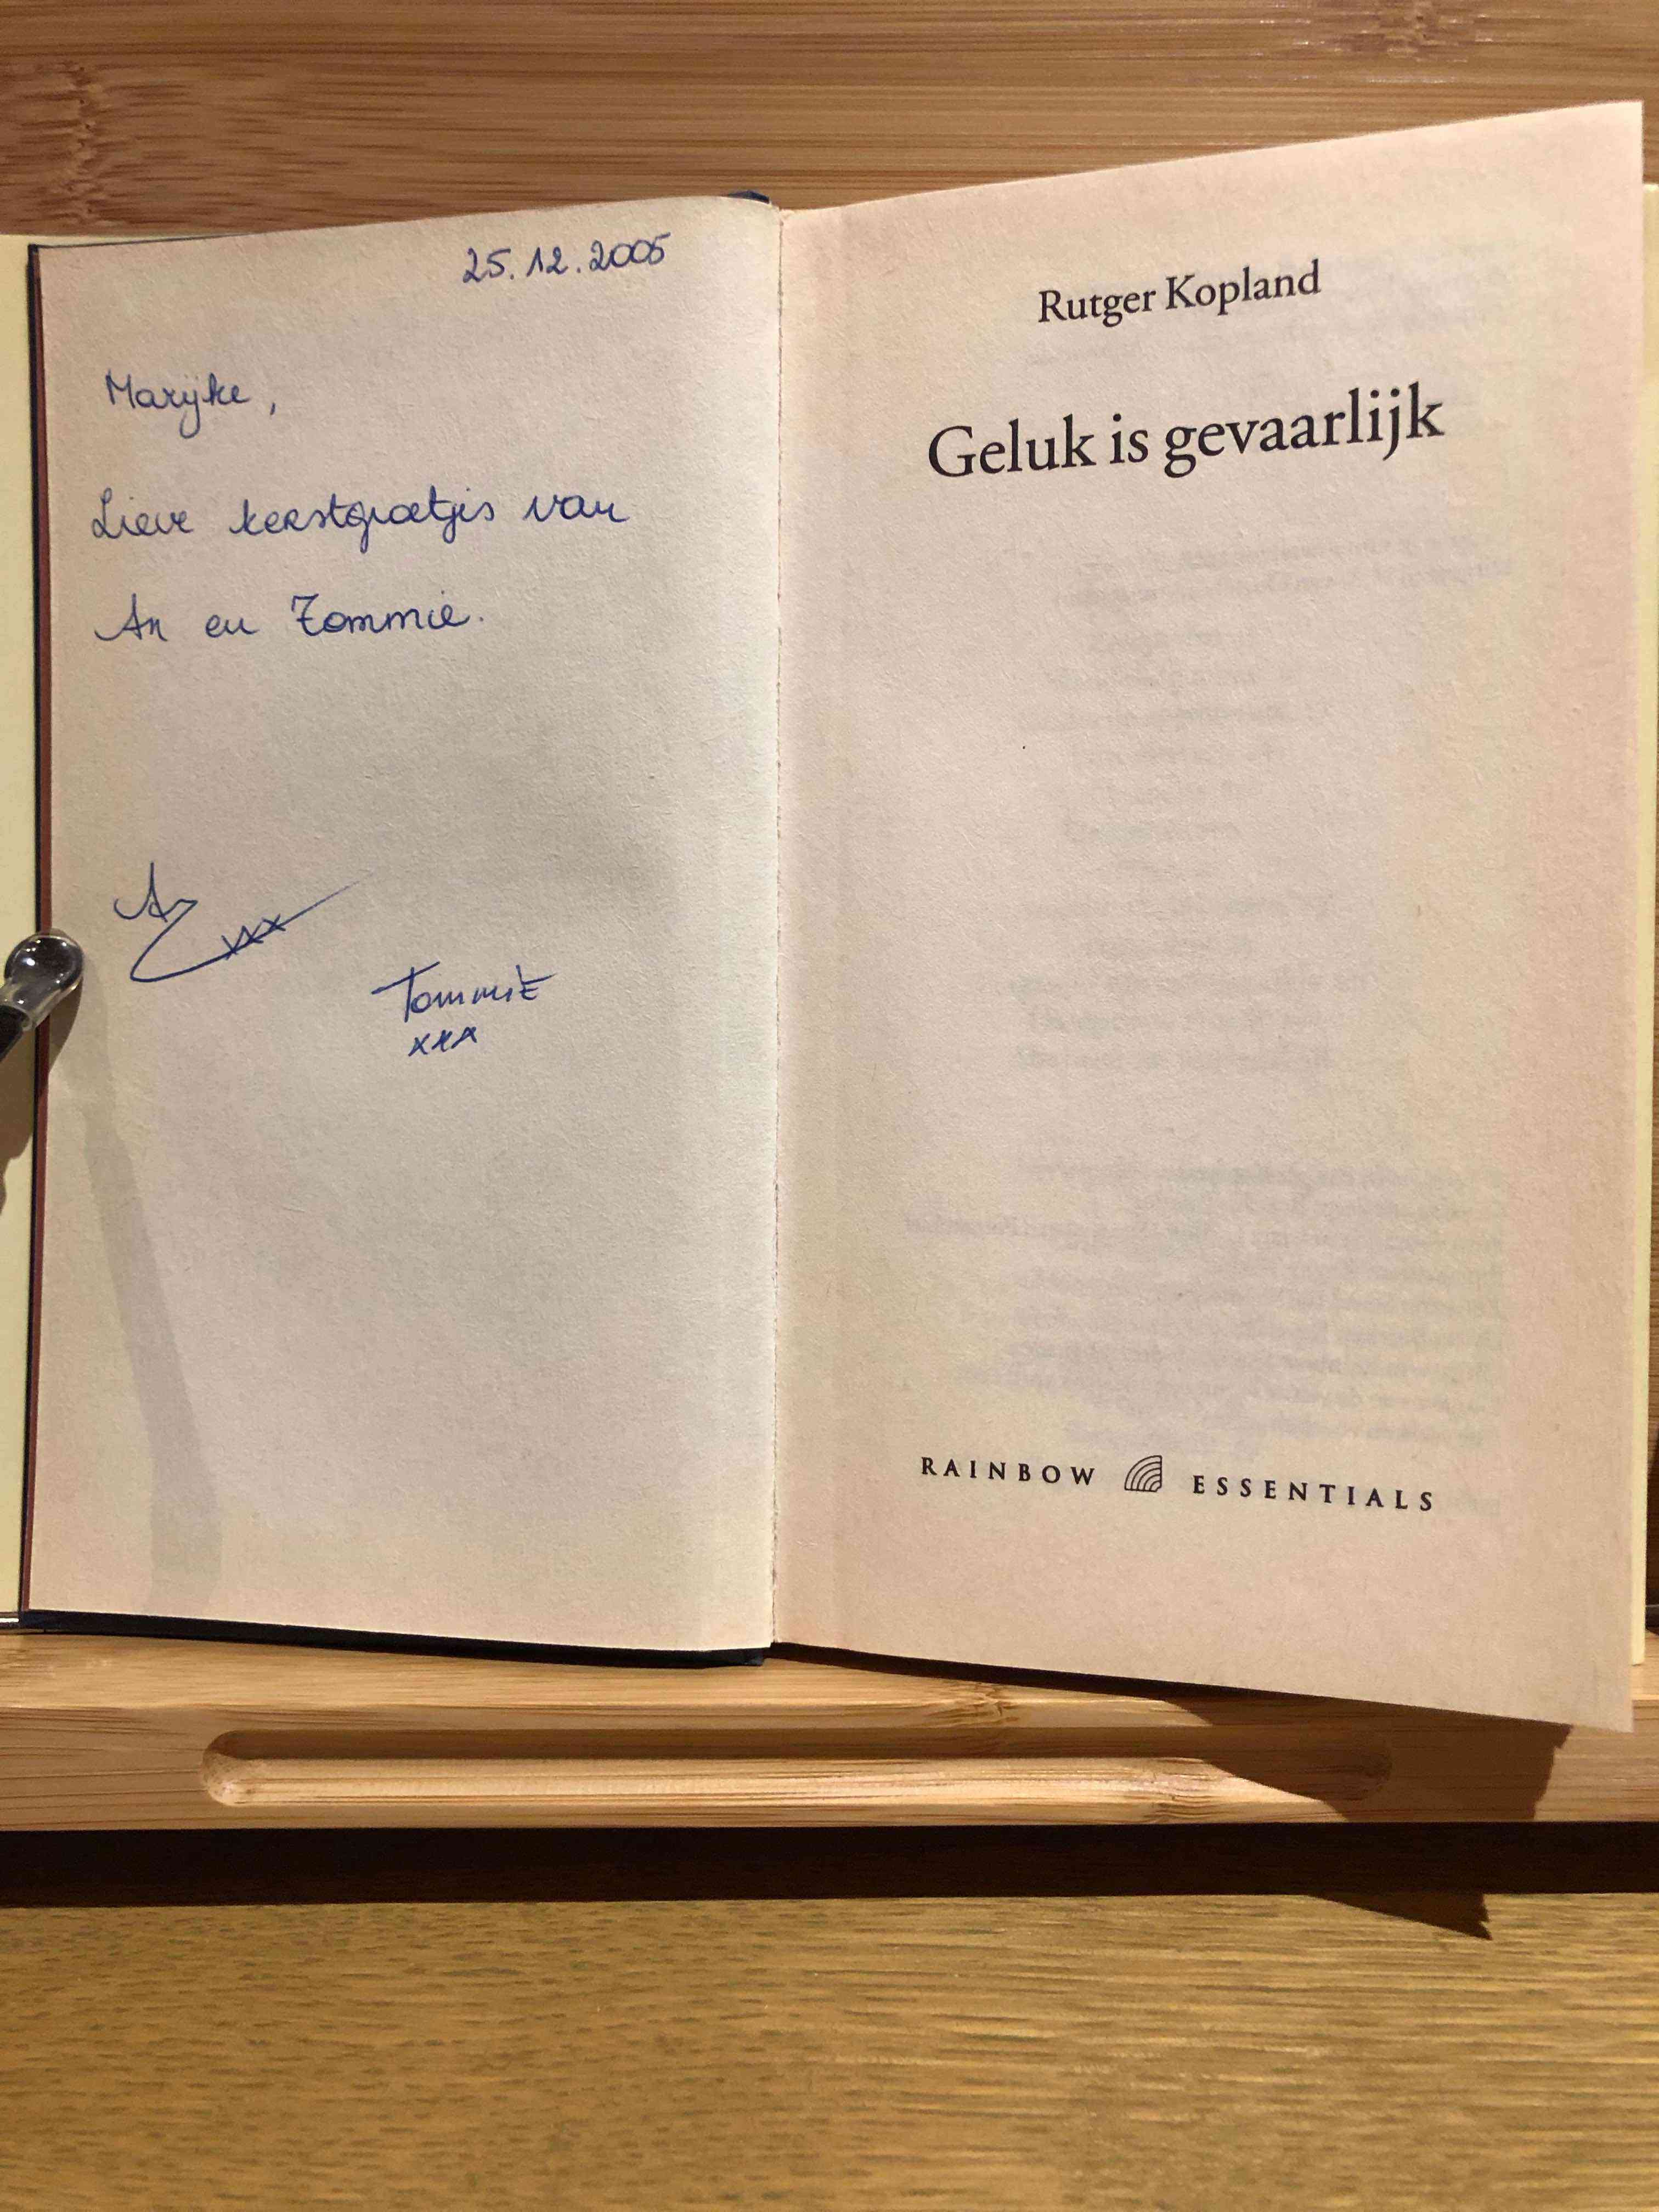 25.12.2005
Marijke,
Lieve kerstgroetjes van
An en Tommie.
An
xxx
Tommie
xxx
Rutger Kopland
Geluk is gevaarlijk
RAINBOW ESSENTIALS